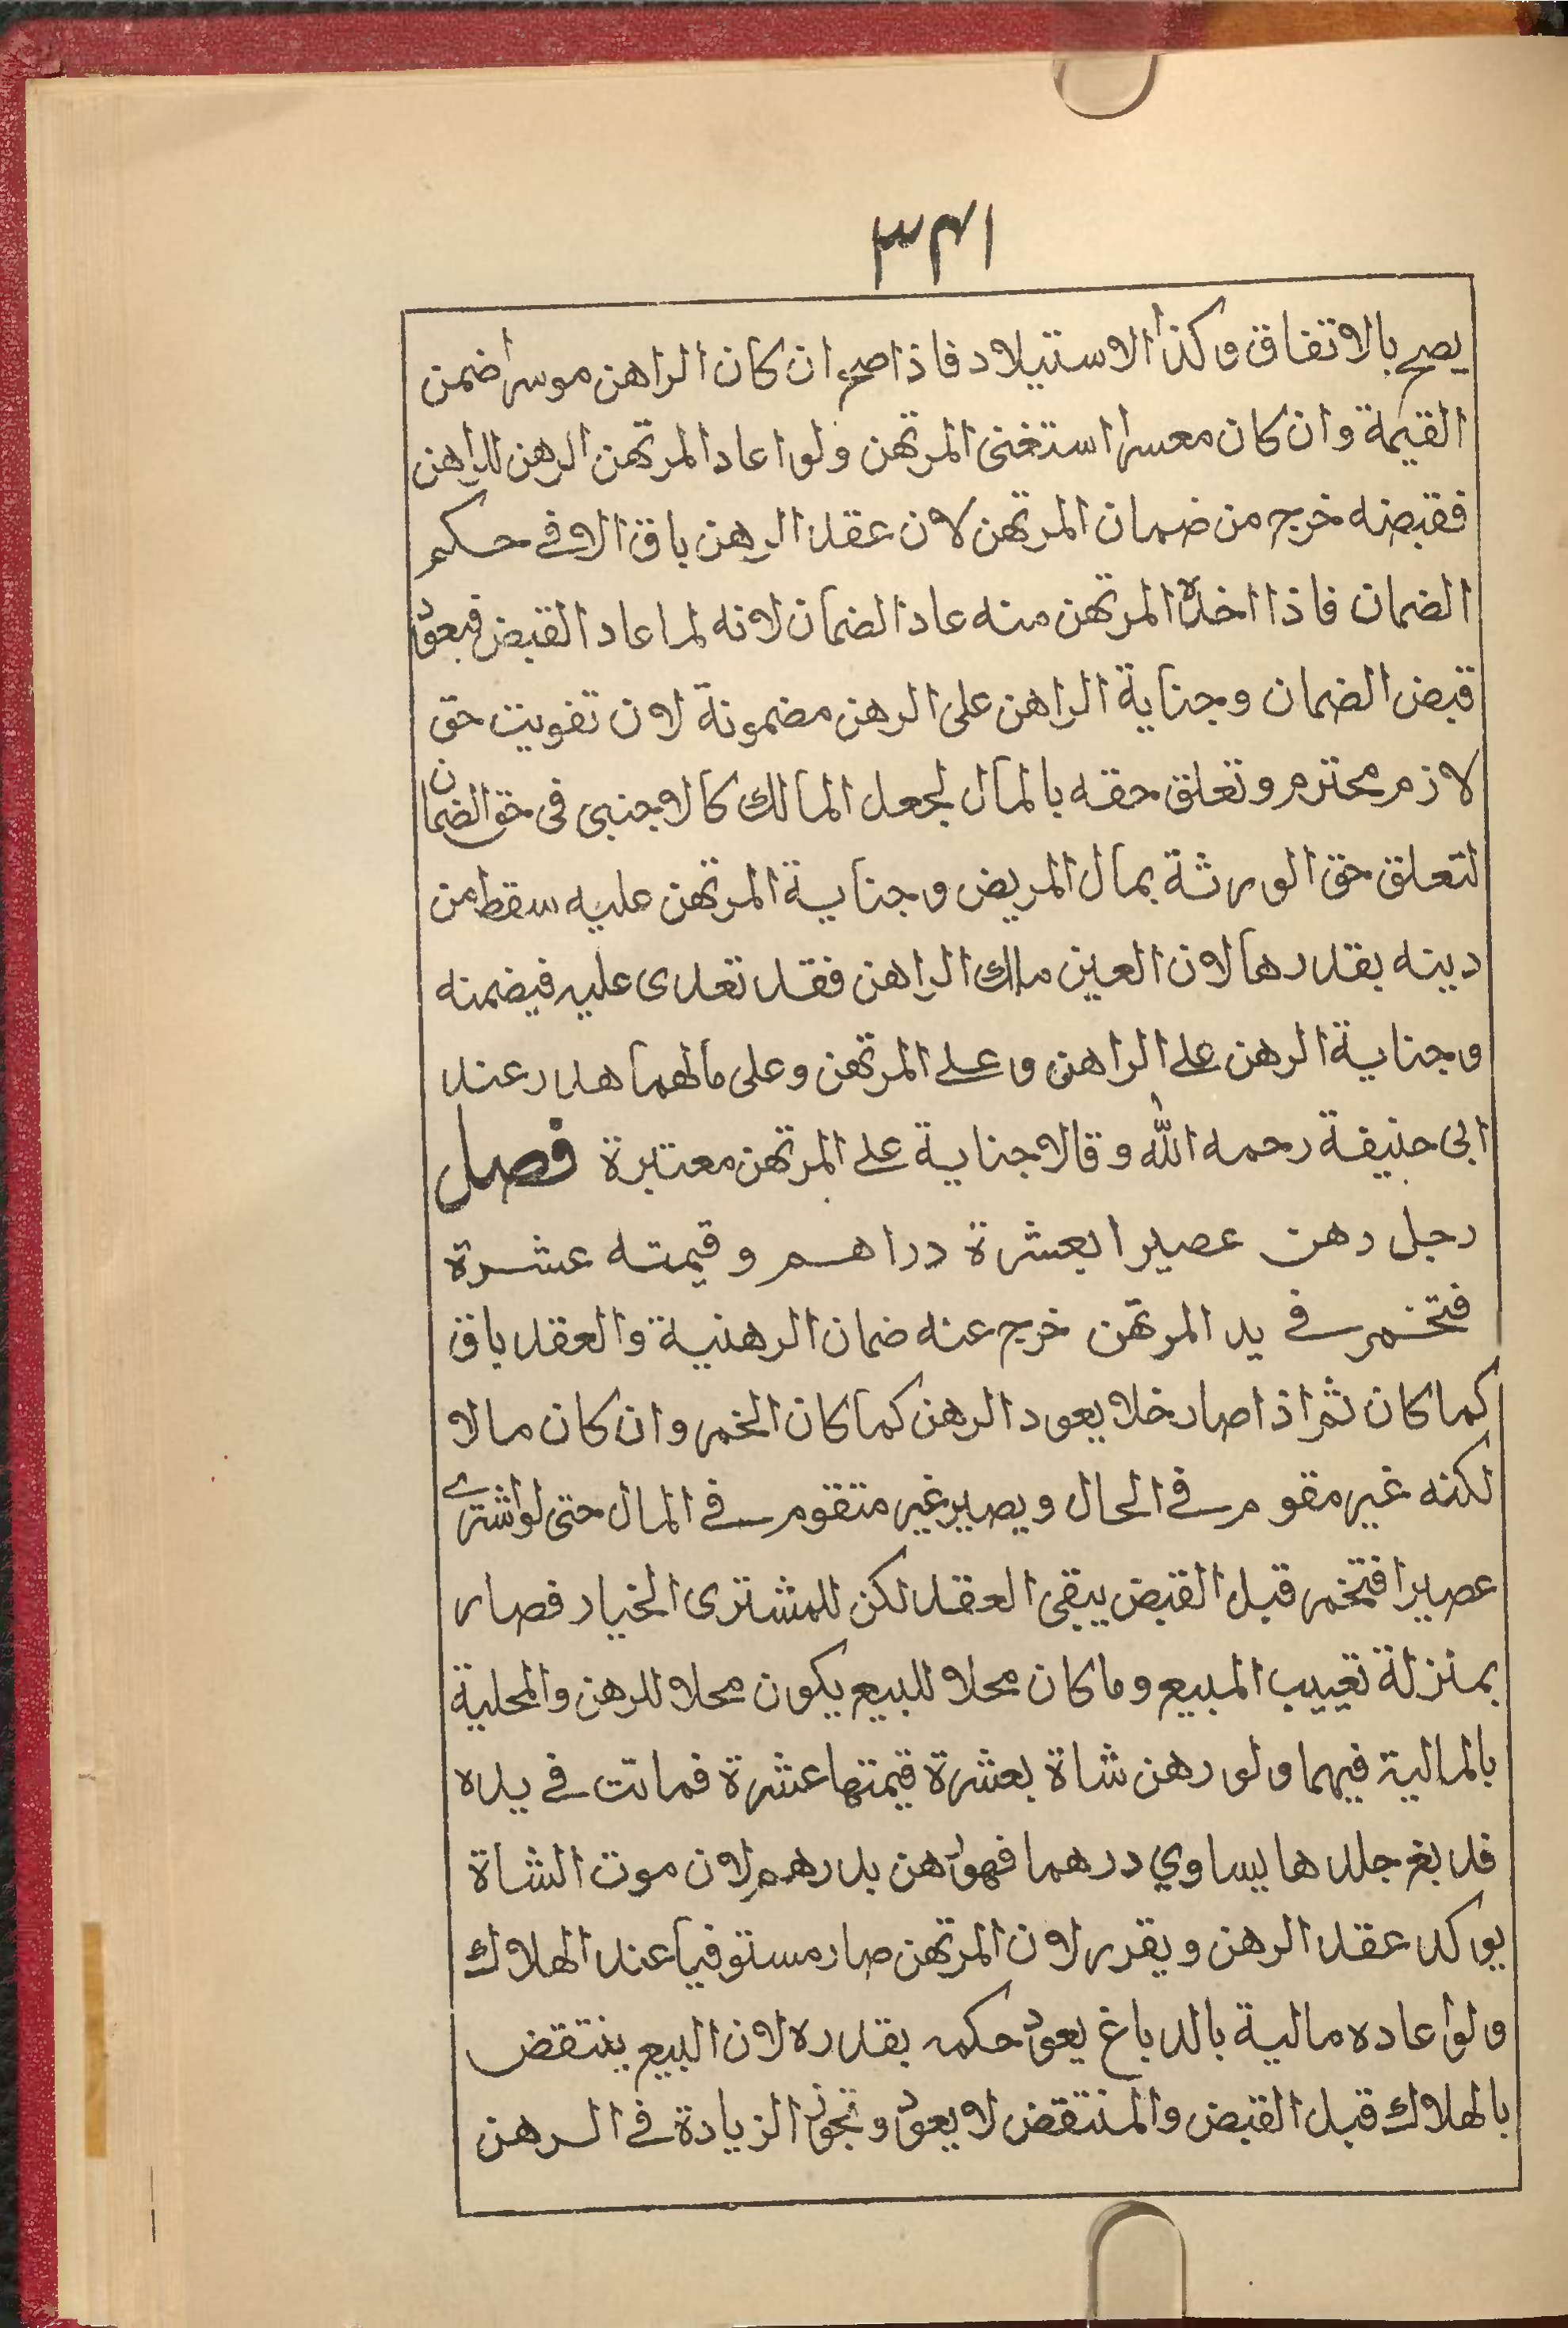 ٣٤١
يصح بالاتفاق وكذا الاستيلاد فاذا صح ان كان الراهن موسرا ضمن
القيمة وان كان معسرا استغنى المرتهن ولو اعاد المرتهن الرهن للراهن
فقبضه خرج من ضمان المرتهن لان عقد الرهن باق الا في حكم
الضمان فاذا اخذه المرتهن منه عاد الضمان لانه لما عاد القبض فيعود
قبض الضمان وجناية الراهن على الرهن مضمونة لان تفويت حق
لازم محترم وتعلق حقه بالمال لجعل المالك كالاجنبى فى حق الضمان
لتعلق حق الورثة بمال المريض وجناية المرتهن عليه سقط من
دينه بقدرها لان العين ملك الراهن فقد تعدى عليه فيضمنه
وجناية الرهن على الراهن وعلى المرتهن وعلى مالهما هدر عند
ابى حنيفة رحمه الله وقالا جناية على المرتهن معتبرة فصل
رجل رهن عصيرا بعشرة دراهم وقيمته عشرة
فتخمر في يد المرتهن خرج عنه ضمان الرهنية والعقد باق
كما كان ثم اذا صار خلا يعود الرهن كما كان الخمر وان كان مالا
لكنه غير مقوم في الحال ويصير غير متقوم في المال حتى لو اشترى
عصيرا فتخمر قبل القبض يبقى العقد لكن للمشترى الخيار فصار
بمنزلة تعييب المبيع وما كان محلا للبيع يكون محلا للرهن والمحلية
بالمالية فيهما ولو رهن شاة بعشرة قيمتها عشرة فماتت في يده
فدبغ جلدها يساوي درهما فهو رهن بدرهم لان موت الشاة
يوكد عقد الرهن ويقرر لان المرتهن صار مستوفيا عند الهلاك
ولو اعاده مالية بالدباغ يعود حكمه بقدره لان البيع ينتقض
بالهلاك قبل القبض والمنتقض لا يعود وتجوز الزيادة في الرهن